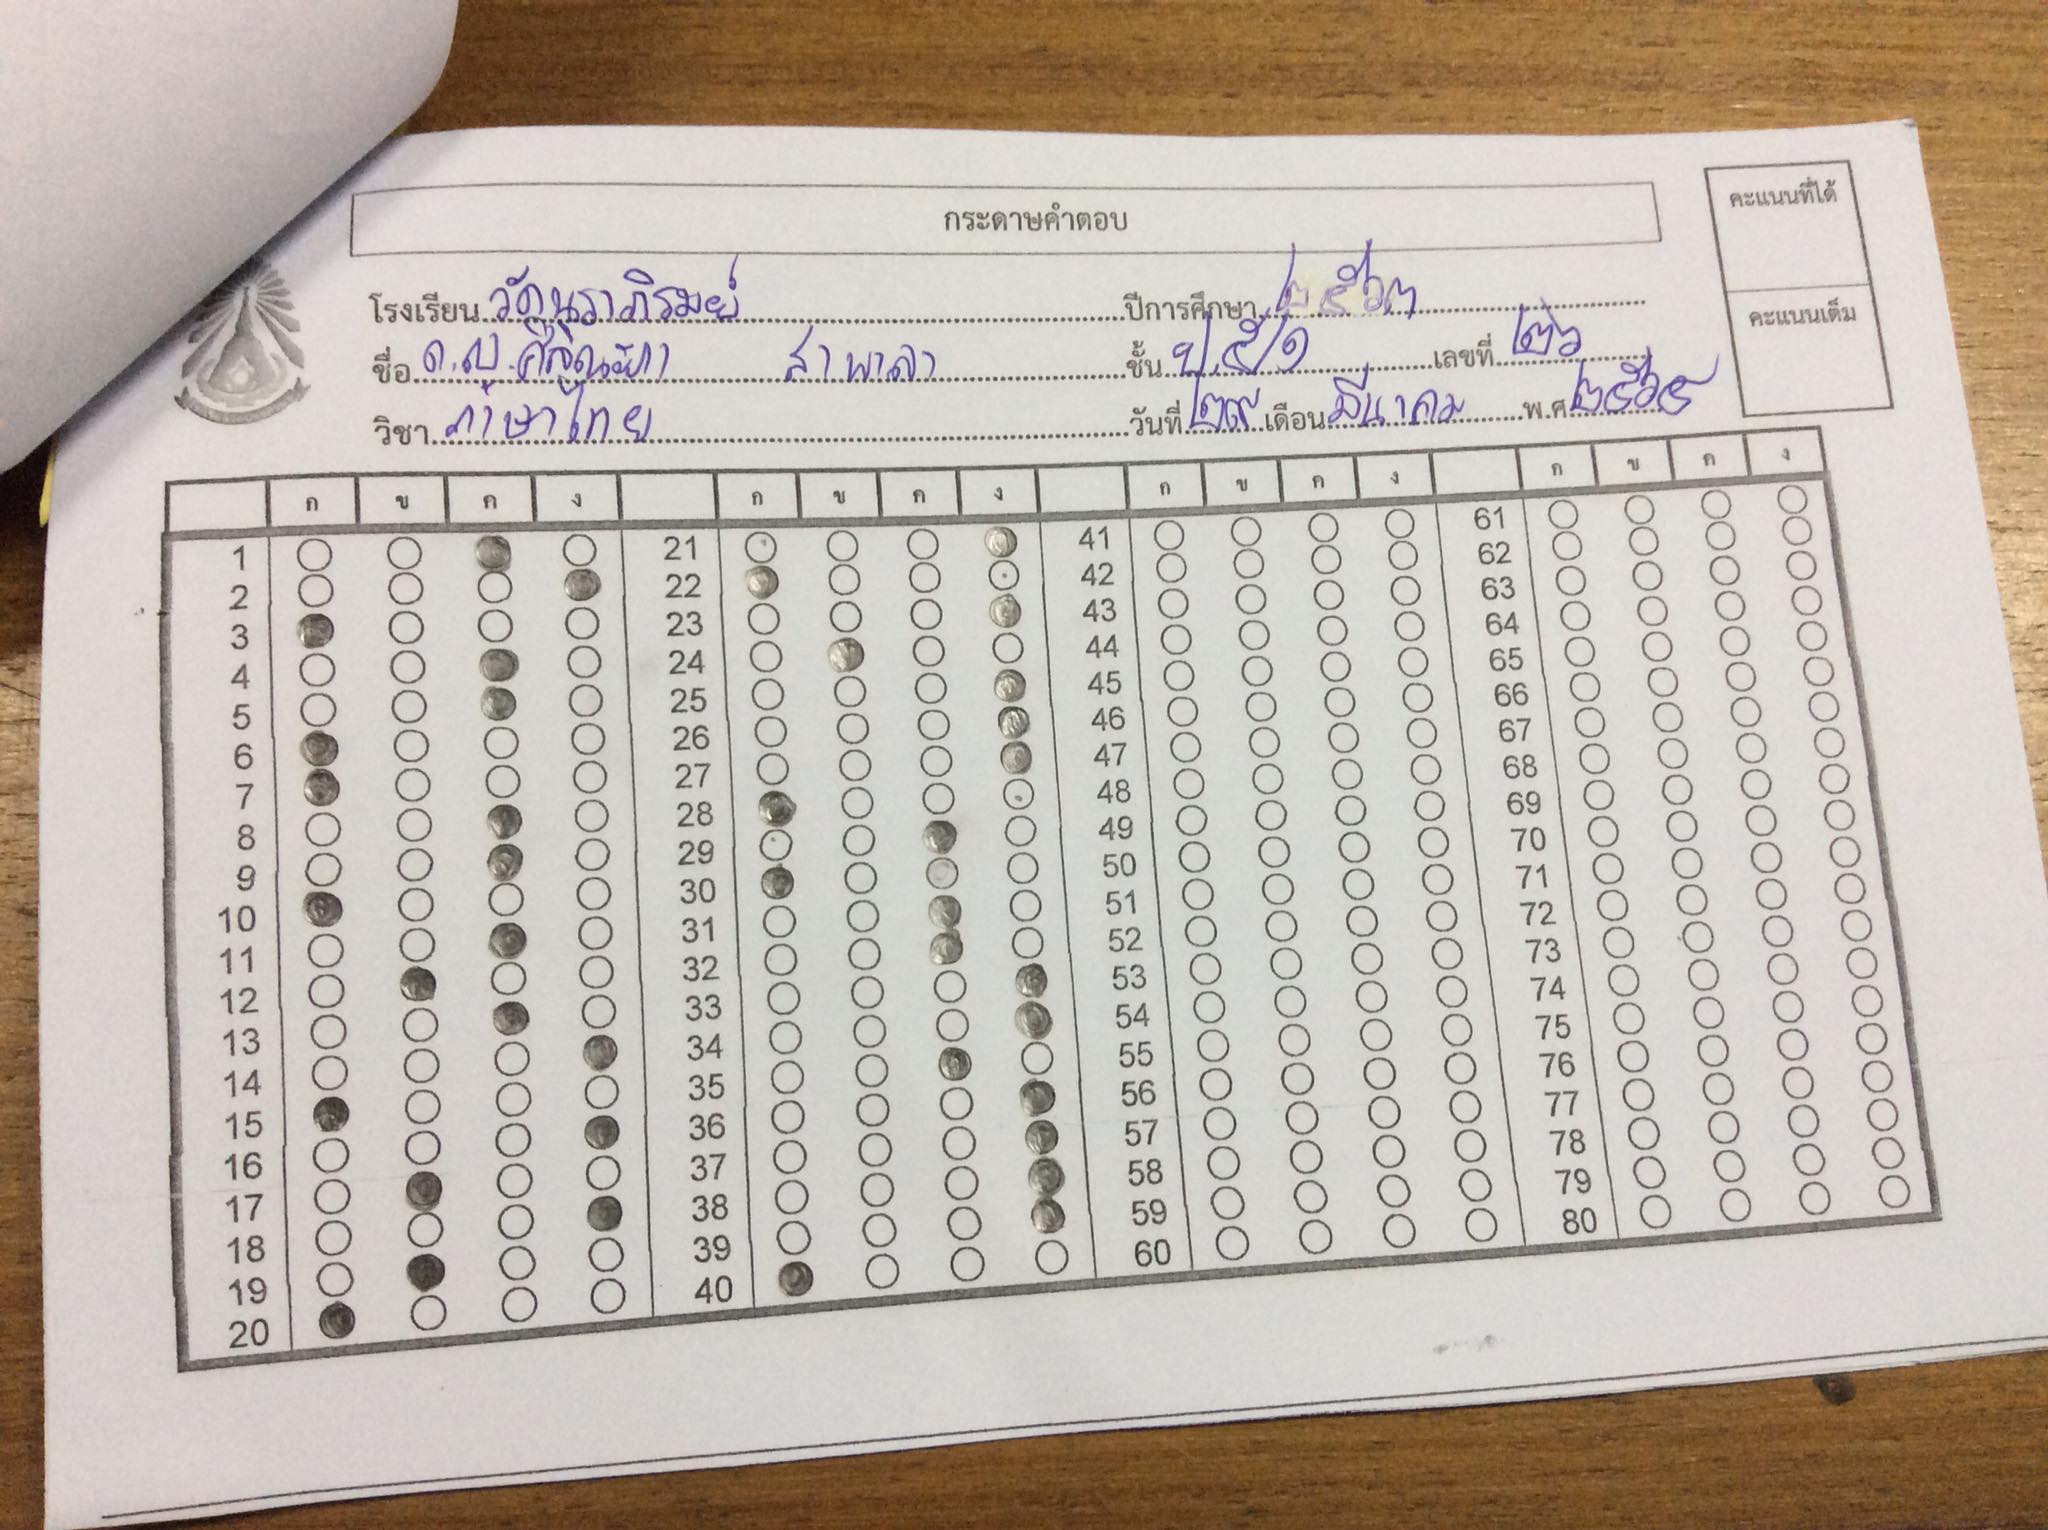 กระดาษคำตอบ
คะแนนที่ได้
คะแนนเต็ม
โรงเรียน วัดนราภิรมย์ ปีการศึกษา ๒๕๖๓
ชื่อ ด.ญ. สาพาลา ชั้น ป.๕/๑ เลขที่ ๒๖
วิชา ภาษาไทย วันที่ ๒๙ เดือน มีนาคม พ.ศ. ๒๕๖๕
ก ข ค ง ก ข ค ง ก ข ค ง ก ข ค ง
1 21 41 61
2 22 42 62
3 23 43 63
4 24 44 64
5 25 45 65
6 26 46 66
7 27 47 67
8 28 48 68
9 29 49 69
10 30 50 70
11 31 51 71
12 32 52 72
13 33 53 73
14 34 54 74
15 35 55 75
16 36 56 76
17 37 57 77
18 38 58 78
19 39 59 79
20 40 60 80